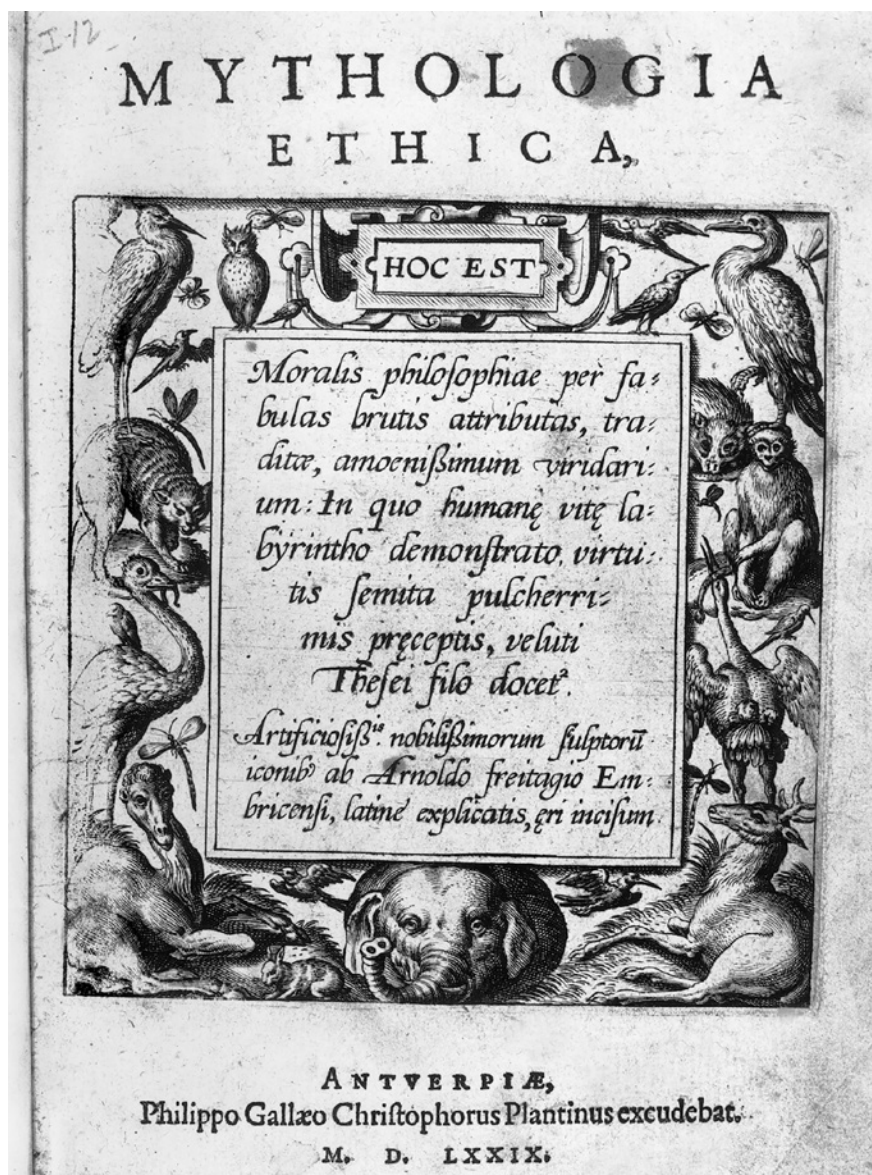 I-12
MYTHOLOGIA
ETHICA,
HOC EST
Moralis philoſophiae per fa⸗
bulas brutis attributas, tra⸗
ditæ, amoenißimum viridari⸗
um: In quo humanę vitę la⸗
byrintho demonſtrato, virtu⸗
tis ſemita pulcherri⸗
mis pręceptis, veluti
Theſei filo docetᵘʳ.
Artificioſißⁱˢ. nobilißimorum ſulptorū
iconibꝰ ab Arnoldo freitagio Em⸗
bricenſi, latinè explicatis, ęri inciſum
ANTVERPIÆ,
Philippo Gallæo Chriſtophorus Plantinus excudebat.
M. D. LXXIX.